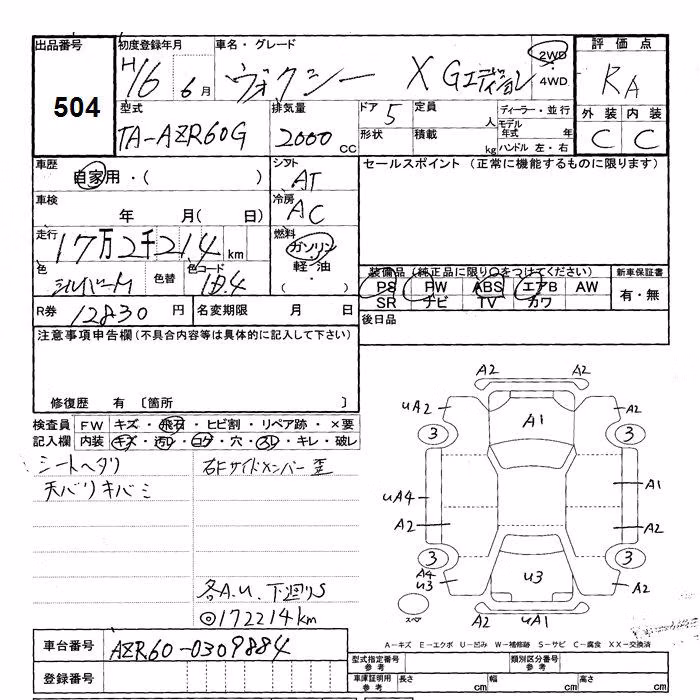 出品番号 初度登録年月 車名・グレード 評価点
504 H16 6月 ヴォクシー X Gエディション 2WD 4WD RA
型式 排気量 ドア 定員 ディーラー・並行 外装 内装
TA-AZR60G 2000 CC 5 人 モデル年式 年 C C
形状 積載 kg ハンドル 左・右
車歴 シフト セールスポイント (正常に機能するものに限ります)
自家用・( ) AT
車検 冷房
年 月( 日) AC
走行 燃料
17万2千214 km ガソリン
軽・油
色 色替 色コード 装備品 (純正品に限り○をつけてください) 新車保証書
シルバーM 1B4 ・( ) PS PW ABS エアB AW 有・無
SR ナビ TV カワ
R券 12830 円 名変期限 月 日 後日品
注意事項申告欄(不具合内容等は具体的に記入して下さい)
修復歴 有 〔箇所 〕
検査員 FW キズ・飛石・ヒビ割・リペア跡・×要
記入欄 内装 キズ・汚レ・コゲ・穴・スレ・キレ・破レ
シートヘタリ 右Fサイドメンバー歪
天バリキバミ
各A.U. 下廻りS
◎172214km
A2 A2
uA2 A1 A2
3 3
uA4 A1
A2 A2
3 3
A4 u3 u3 A2
スペア A2 uA1 A2
A-キズ E-エクボ U-凹み W-補修跡 S-サビ C-腐食 XX-交換済
車台番号 AZR60-0309884
型式指定番号 参考 類別区分番号 参考
登録番号 車庫証明用 参考 長さ cm 幅 cm 高さ cm